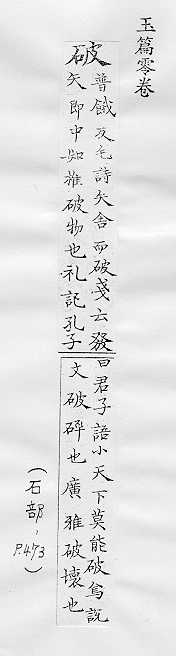 玉篇零卷
破
普餓反毛詩矢舍而破戔云發
矢即中如椎破物也礼記孔子
曰君子語小天下莫能破焉說
文破碎也廣雅破壞也
(石部, P.473)